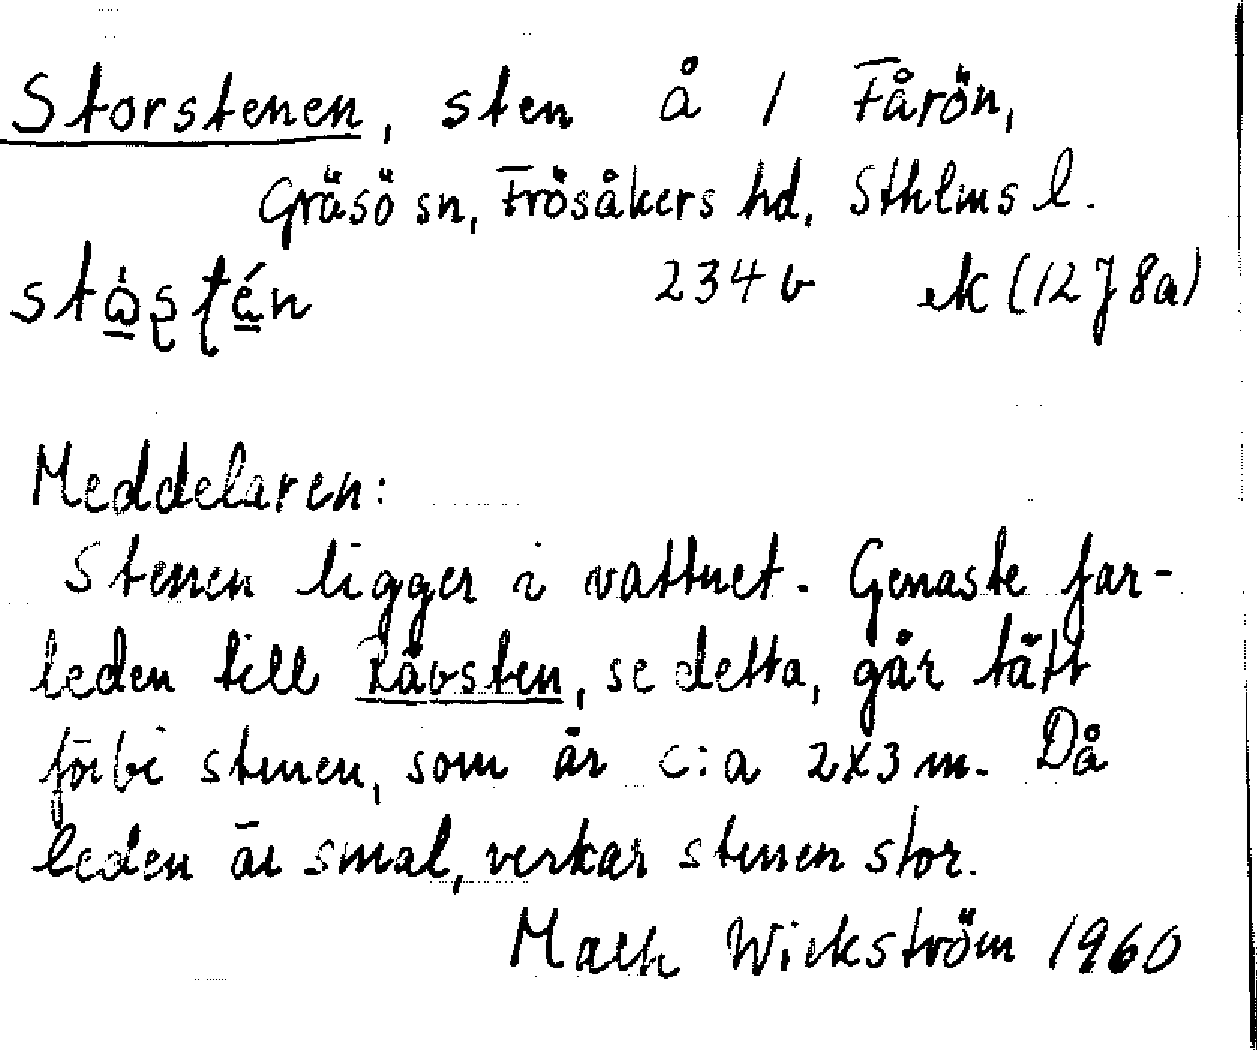 Storstenen, sten å 1 Fårön,
Gräsö sn, Frösåkers hd, Sthlms l.
234 b ek (12J8a)
Meddelaren:
Stenen ligger i vattnet. Genaste far-
leden till Rävsten, se detta, går tätt
förbi stenen, som är c:a 2x3 m. Då
leden är smal, verkar stenen stor.
Wickström 1960